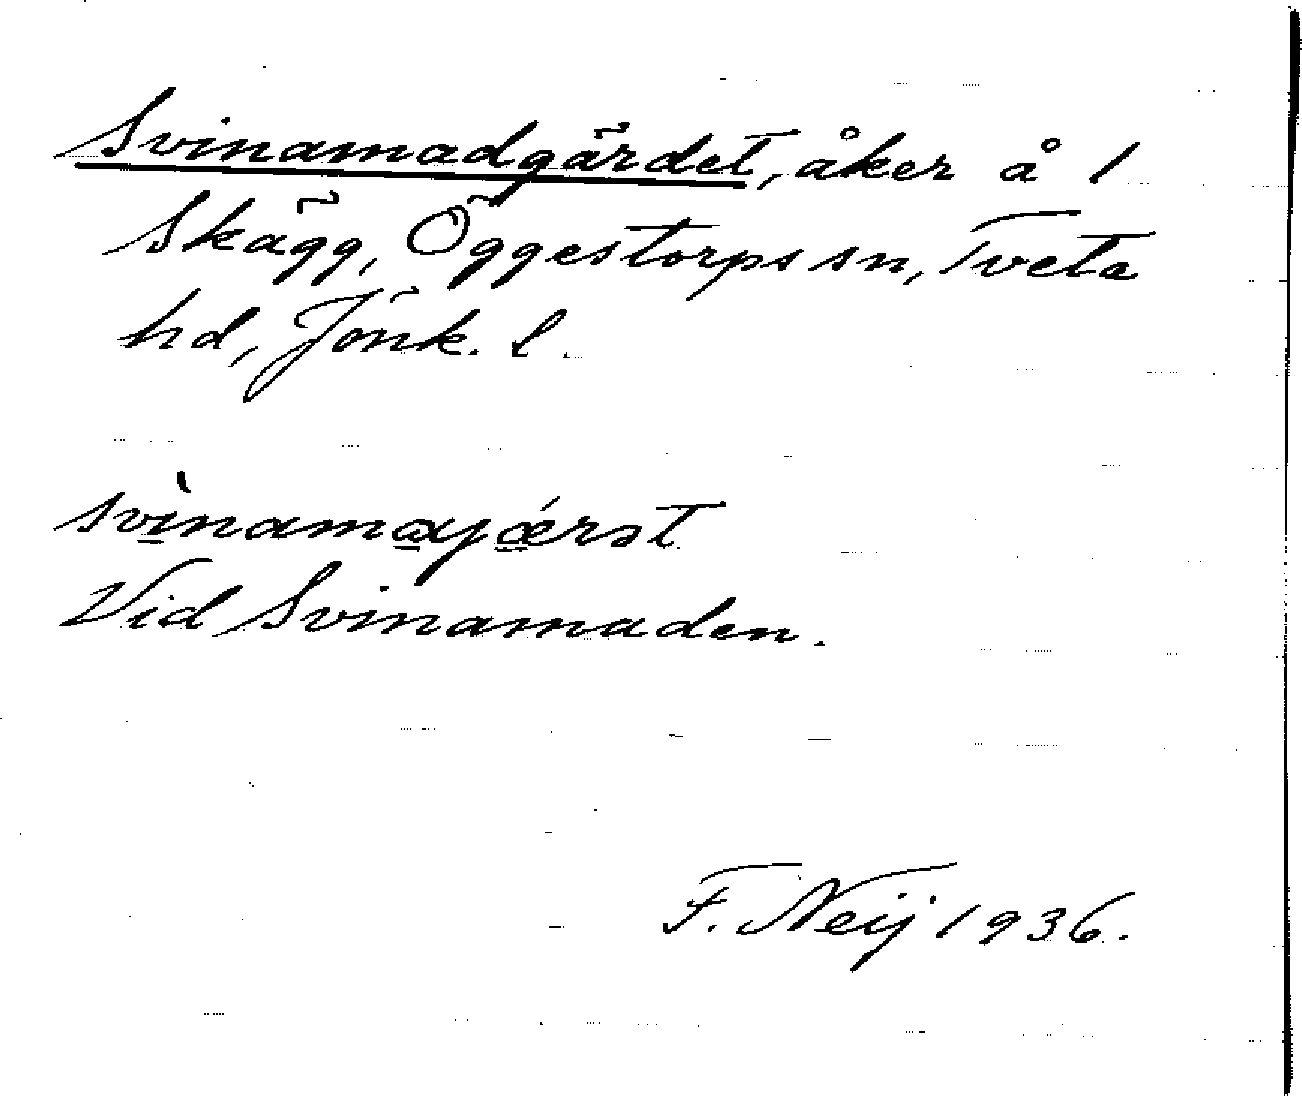 Svinamadgärdet, åker å 1
Skägg, Öggestorps sn, Tveta
hd, Jönk. l.
svìnamayǽrst
Vid Svinamaden.
F. Neij 1936.